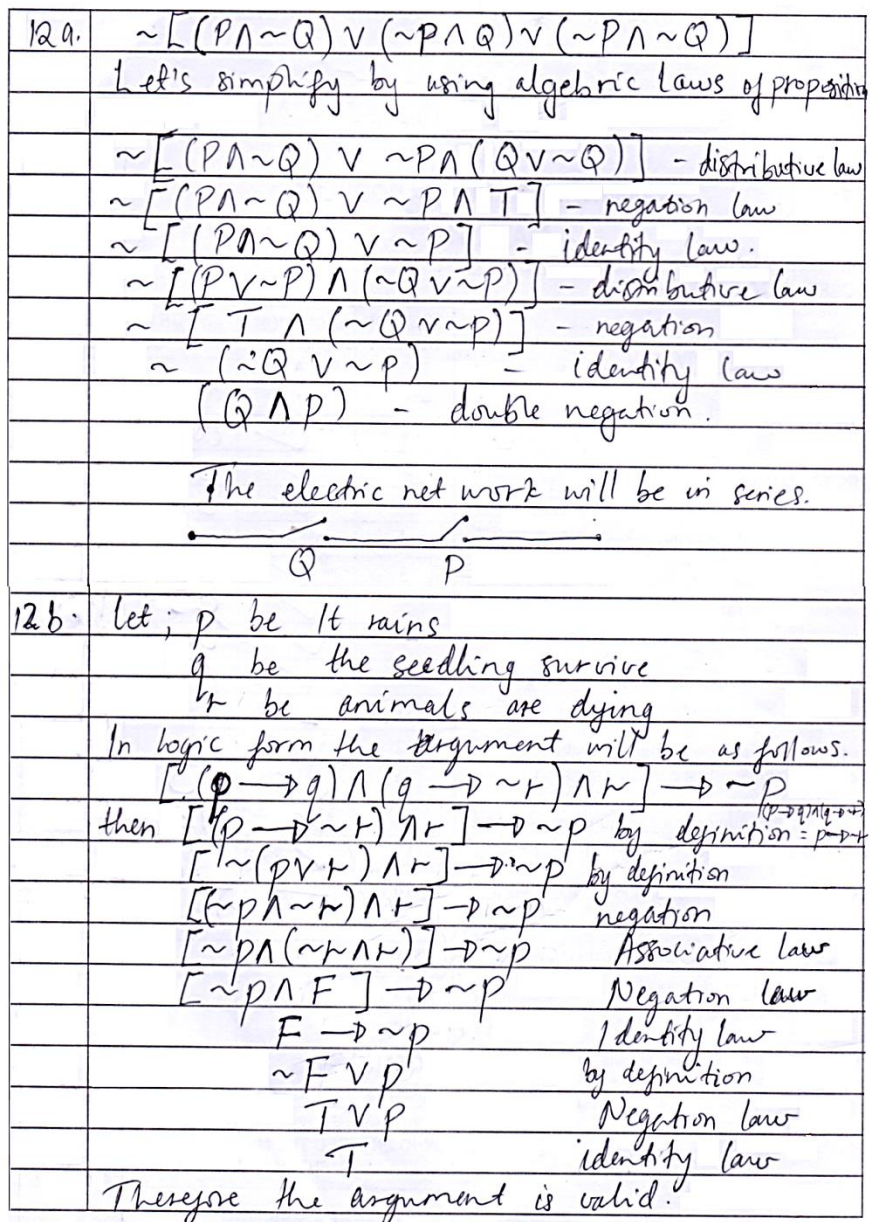 12a. ~[(P∧~Q) ∨ (~P∧Q) ∨ (~P∧~Q)]
Let's simplify by using algebric laws of proposition
~[(P∧~Q) ∨ ~P∧(Q∨~Q)] - distributive law
~[(P∧~Q) ∨ ~P ∧ T] - negation law
~[(P∧~Q) ∨ ~P] - identity law.
~[(P∨~P)∧(~Q∨~P)] - distributive law
~[T ∧ (~Q∨~P)] - negation
~ (~Q ∨ ~P) - identity law
(Q∧P) - double negation.
The electric net work will be in series.
Q P
12b. let; p be It rains
q be the seedling survive
r be animals are dying
In logic form the argument will be as follows.
[(p→q)∧(q→~r)∧r]→~p
then [(p→~r)∧r]→~p by definition = p→r (p→q)∧(q→r)
[~(p∨r)∧r]→~p by definition
[(~p∧~r)∧r]→~p negation
[~p∧(~r∧r)]→~p Associative law
[~p∧F]→~p Negation law
F→~p Identity law
~F∨p by definition
T∨p Negation law
T identity law
Therefore the argument is valid.